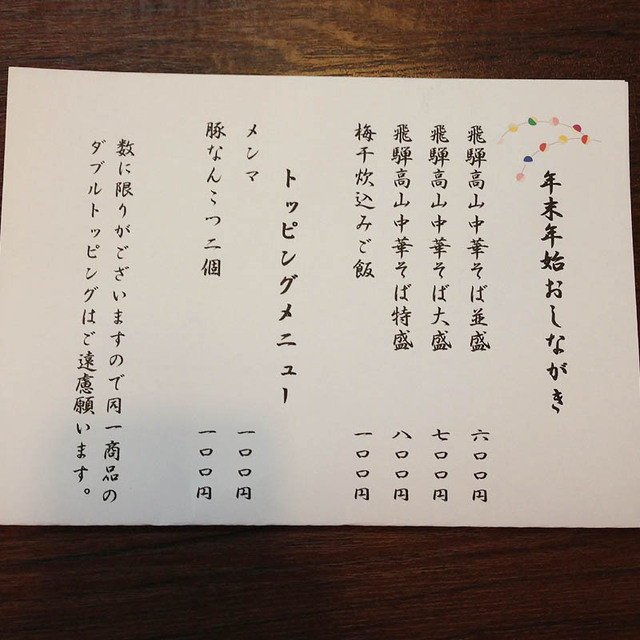 年末年始おしながき
飛騨高山中華そば並盛 六〇〇円
飛騨高山中華そば大盛 七〇〇円
飛騨高山中華そば特盛 八〇〇円
梅干炊込みご飯 一〇〇円
トッピングメニュー
メンマ 一〇〇円
豚なんこつ二個 一〇〇円
数に限りがございますので同一商品の
ダブルトッピングはご遠慮願います。